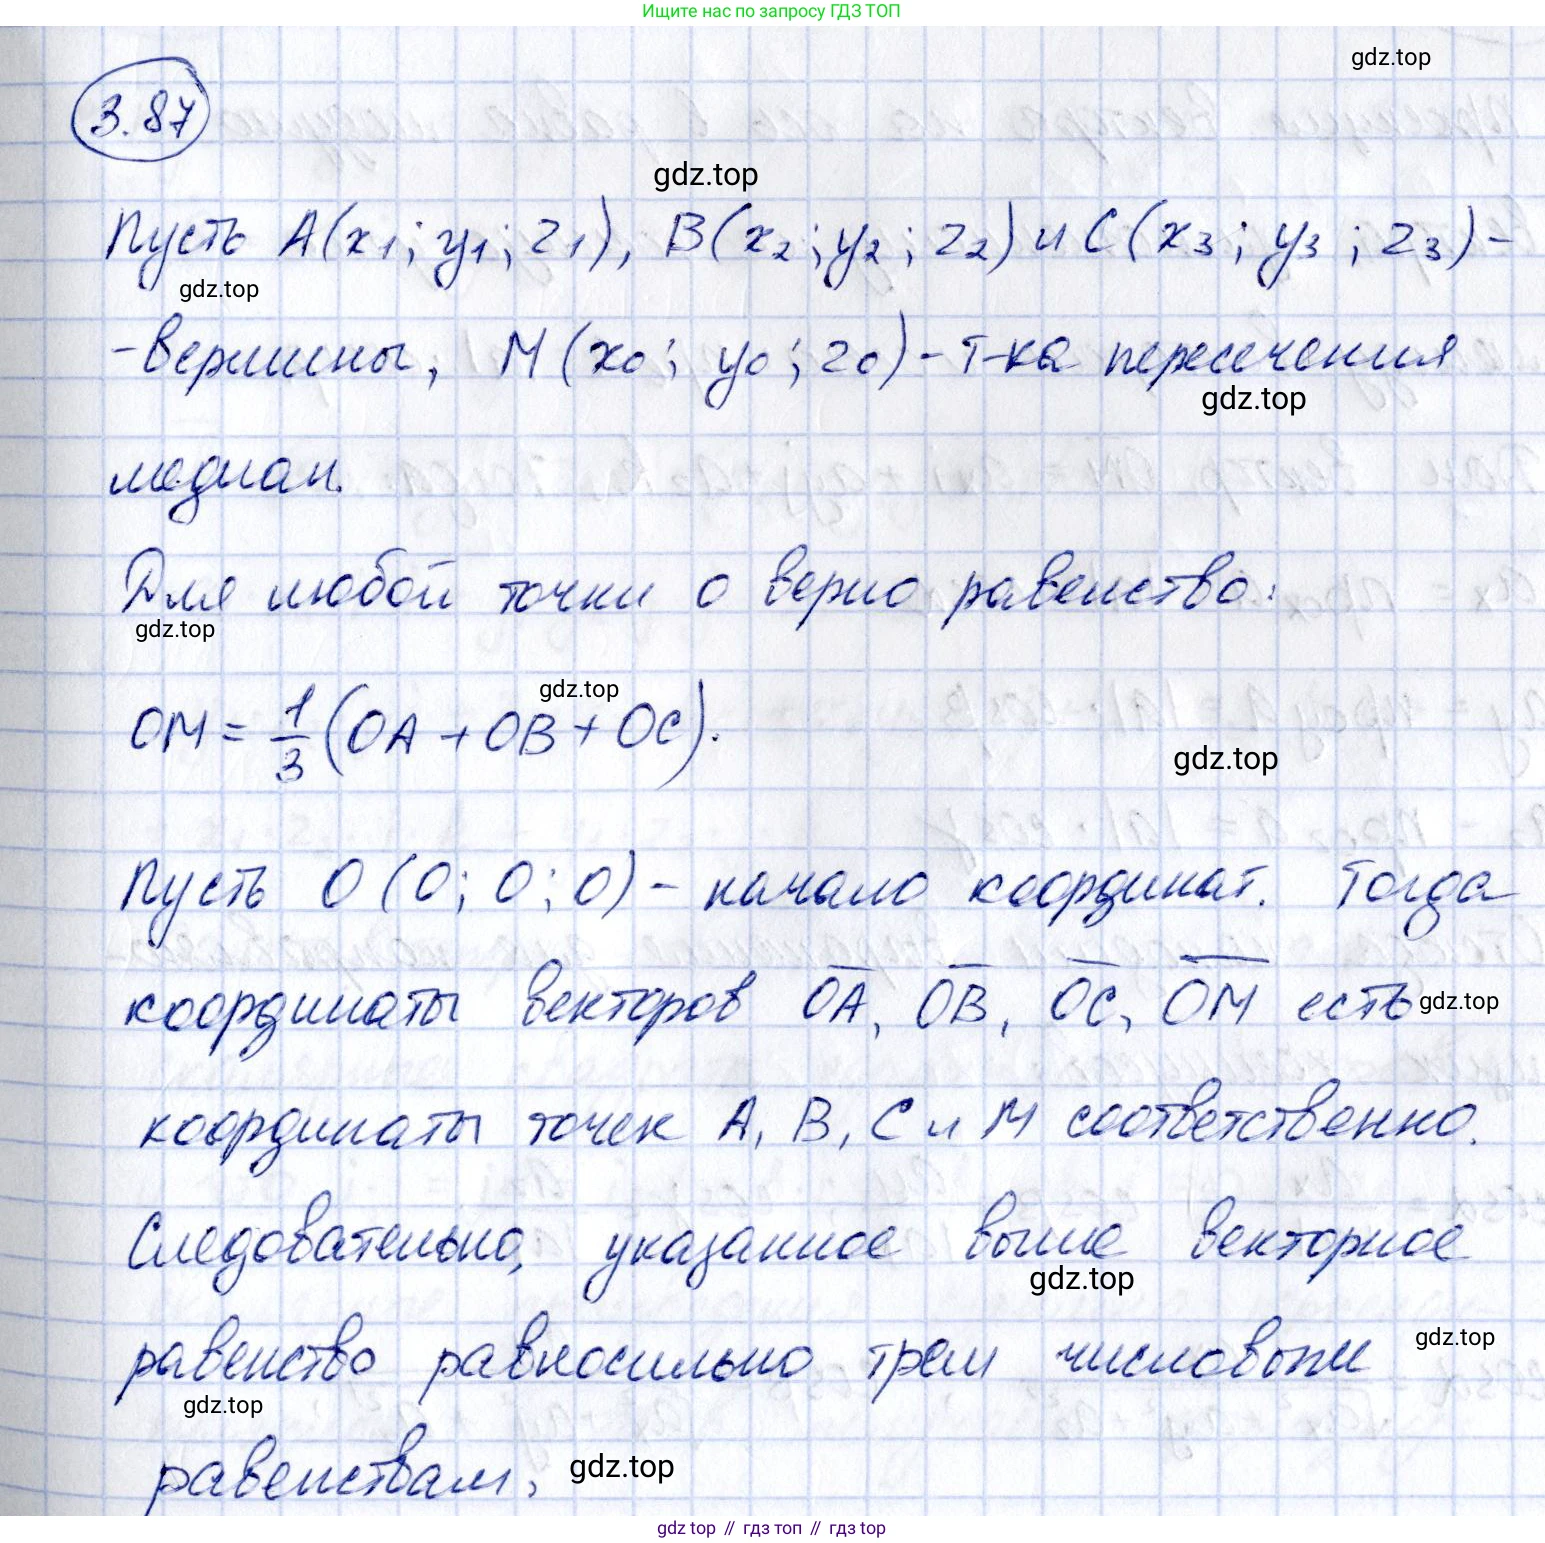 Ищите нас по запросу ГДЗ ТОП
gdz.top
3.87
gdz.top
Пусть A(x₁; y₁; z₁), B(x₂; y₂; z₂) и C(x₃; y₃; z₃) -
gdz.top
- вершины, M(x₀; y₀; z₀) - т-ка пересечения
gdz.top
медиан.
Для любой точки О верно равенство:
gdz.top
gdz.top
OM = 1/3 (OA + OB + OC).
gdz.top
Пусть O(0; 0; 0) - начало координат. Тогда
координаты векторов O̅A̅, O̅B̅, O̅C̅, O̅M̅ есть gdz.top
координаты точек A, B, C и M соответственно.
Следовательно, указанное выше векторное
gdz.top
равенство равносильно трем числовым gdz.top
gdz.top
равенствам:
gdz.top
gdz top // гдз топ // gdz.top